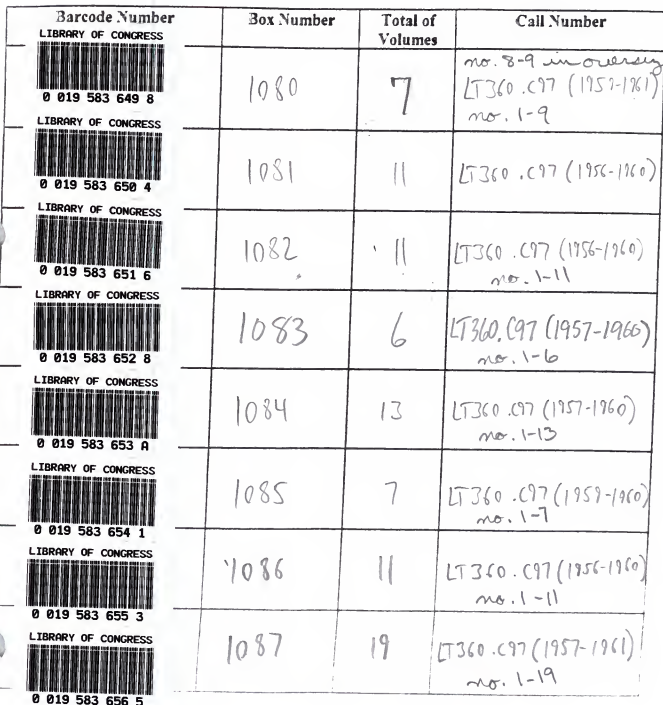 Barcode Number Box Number Total of Volumes Call Number
LIBRARY OF CONGRESS
0 019 583 649 8
1080
7
no. 8-9 in oversize
LT360 .C97 (1959-1961)
no. 1-9
LIBRARY OF CONGRESS
0 019 583 650 4
1081
11
LT360 .C97 (1956-1960)
LIBRARY OF CONGRESS
0 019 583 651 6
1082
11
LT360 .C97 (1956-1960)
no. 1-11
LIBRARY OF CONGRESS
0 019 583 652 8
1083
6
LT360.C97 (1957-1960)
no. 1-6
LIBRARY OF CONGRESS
0 019 583 653 A
1084
13
LT360 .C97 (1957-1960)
no. 1-13
LIBRARY OF CONGRESS
0 019 583 654 1
1085
7
LT360 .C97 (1959-1960)
no. 1-7
LIBRARY OF CONGRESS
0 019 583 655 3
1086
11
LT360 .C97 (1956-1960)
no. 1-11
LIBRARY OF CONGRESS
0 019 583 656 5
1087
19
LT360 .C97 (1957-1961)
no. 1-19